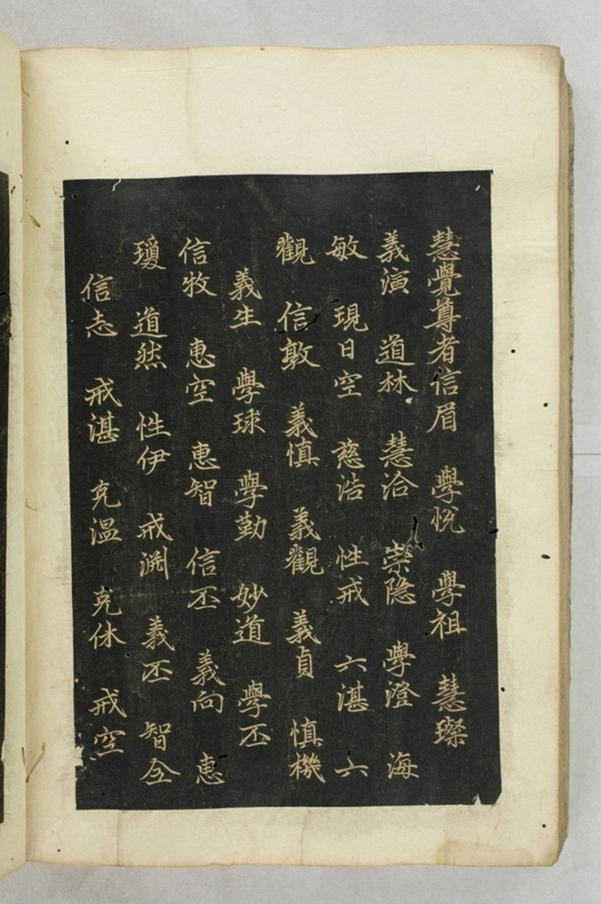 慧覺尊者信眉 學悅 學祖 慧璨
義演 道林 慧洽 崇隐 學澄 海
敏 現日空 慈浩 性戒 六湛 六
觀 信敢 義慎 義觀 義貞 慎機
義生 學球 學勤 妙道 學丕
信牧 惠空 惠智 信丕 義向 惠
瓊 道然 性伊 戒渊 義丕 智全
信志 戒湛 克温 克休 戒空